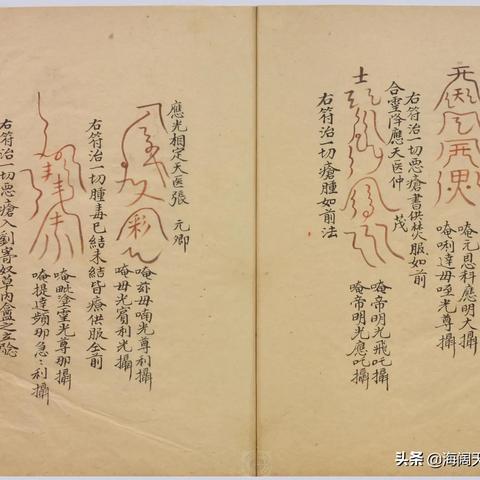 唵元恩科應明大攝
唵唎達毋哑光尊攝
右符治一切悪瘡書供焚服如前
合靈降應天医仲
茂
唵帝明光飛吒攝
唵帝明光應吒攝
右符治一切瘡腫如前法
應光相定天医張
元卿
唵茲毋喃光尊利攝
唵毋光賓利光攝
右符治一切腫毒已結未結皆療供服仝前
唵毗塗靈光尊那攝
唵提達頻那急〻利攝
右符治一切悪瘡入劉寄奴草内龕之立驗
头条 @海阔天